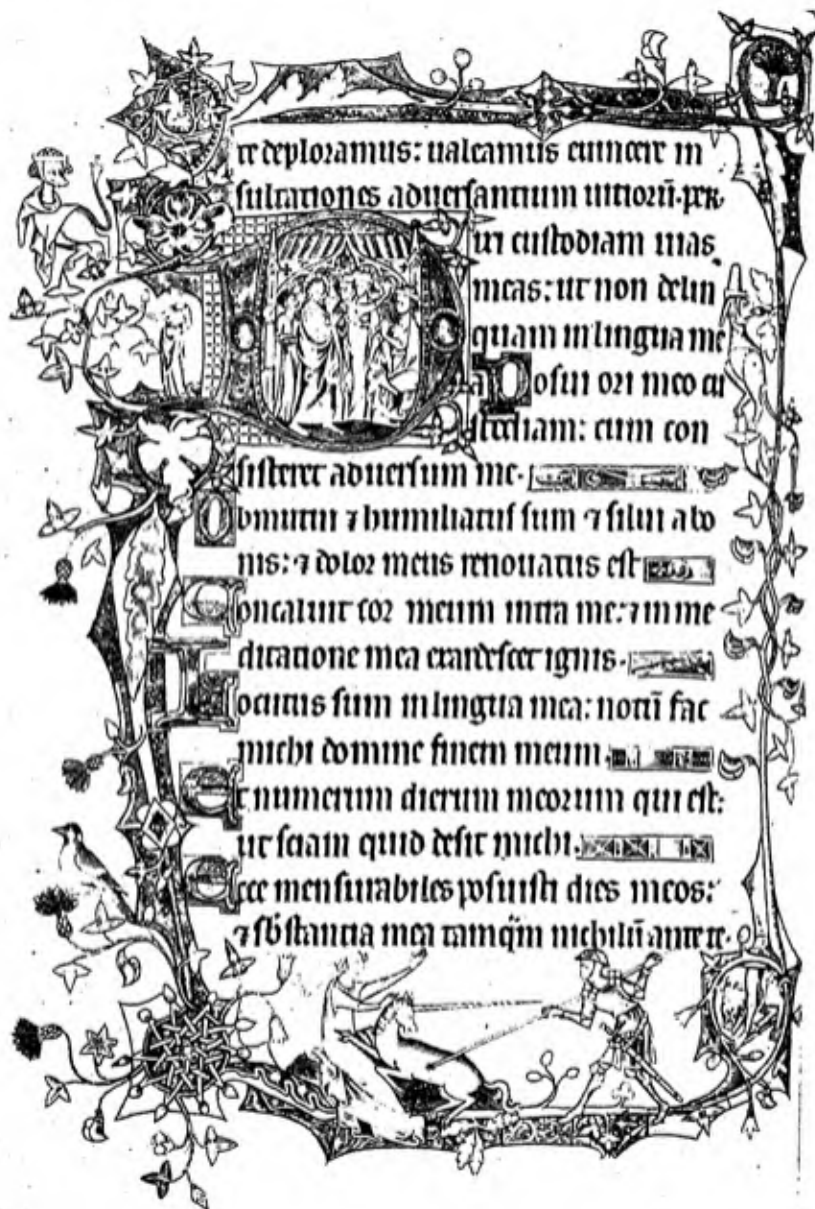 te deploramus: ualeamus euincere in
sultationes aduersantium uitiorū. per.
ixi custodiam uias
meas: ut non delin
quam in lingua me
a Posui ori meo cu
stodiam: cum con
sisteret aduersum me.
Obmutui ⁊ humiliatus sum ⁊ silui a bo
nis: ⁊ dolor meus renouatus est
Concaluit cor meum intra me: ⁊ in me
ditatione mea exardescet ignis.
Locutus sum in lingua mea: notū fac
michi domine finem meum.
Et numerum dierum meorum qui est:
ut sciam quid desit michi.
Ecce mensurabiles posuisti dies meos:
⁊ sb̄stantia mea tamq̄m nichilū ante te.